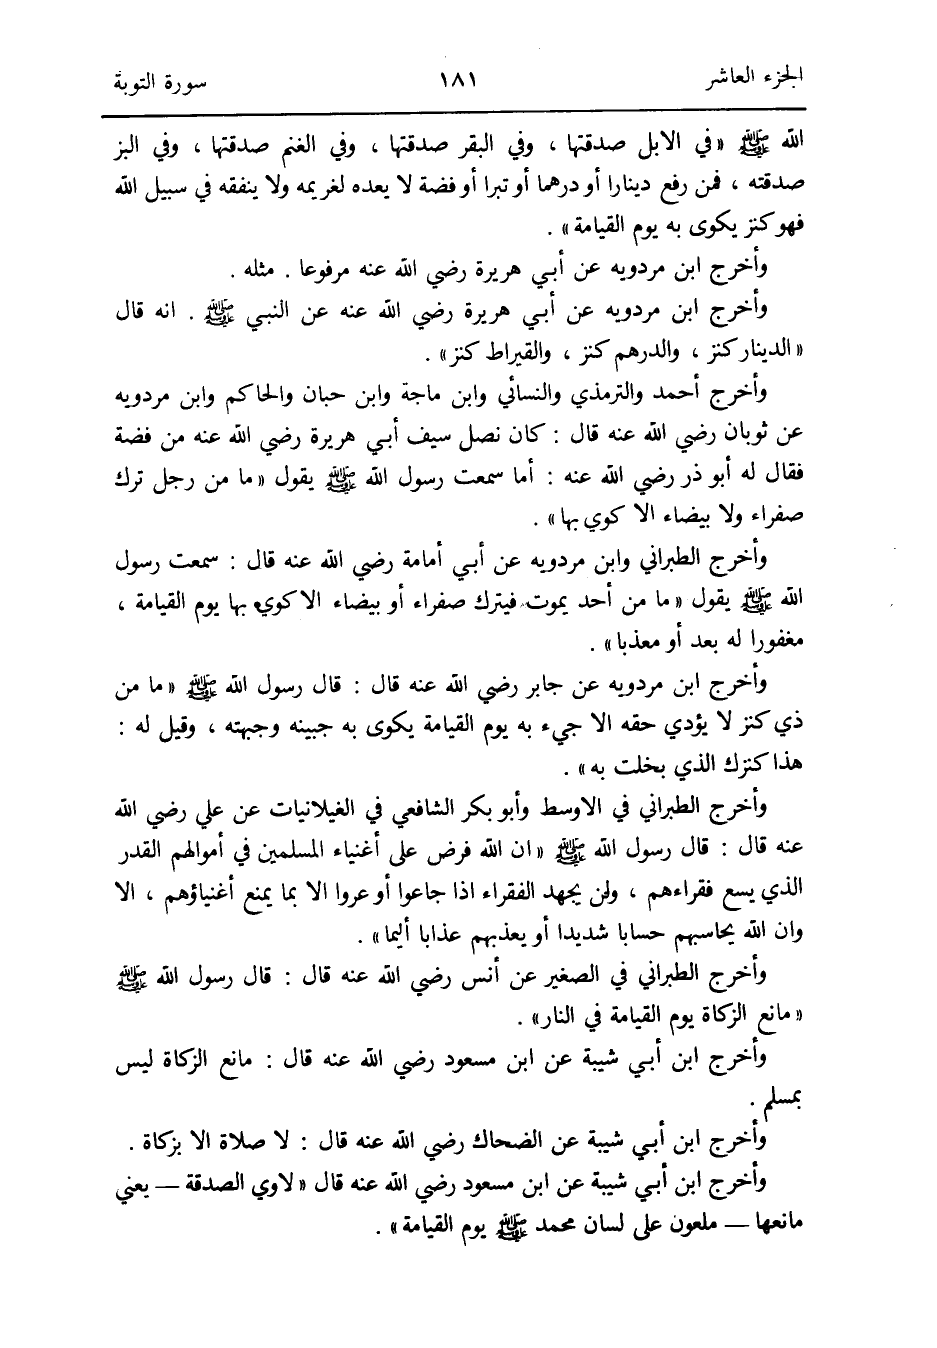 الجزء العاشر ١٨١ سورة التوبة
الله ﷺ « في الابل صدقتها ، وفي البقر صدقتها ، وفي الغنم صدقتها ، وفي البز
صدقته ، فمن رفع دينارا أو درهما أو تبرا أو فضة لا يعده لغريمه ولا ينفقه في سبيل الله
فهو كنز يكوى به يوم القيامة » .
وأخرج ابن مردويه عن أبي هريرة رضي الله عنه مرفوعا . مثله .
وأخرج ابن مردويه عن أبي هريرة رضي الله عنه عن النبي ﷺ . انه قال
« الدينار كنز ، والدرهم كنز ، والقيراط كنز » .
وأخرج أحمد والترمذي والنسائي وابن ماجة وابن حبان والحاكم وابن مردويه
عن ثوبان رضي الله عنه قال : كان نصل سيف أبي هريرة رضي الله عنه من فضة
فقال له أبو ذر رضي الله عنه : أما سمعت رسول الله ﷺ يقول « ما من رجل ترك
صفراء ولا بيضاء الا كوي بها » .
وأخرج الطبراني وابن مردويه عن أبي أمامة رضي الله عنه قال : سمعت رسول
الله ﷺ يقول « ما من أحد يموت فيترك صفراء أو بيضاء الا كوي بها يوم القيامة ،
مغفورا له بعد أو معذبا » .
وأخرج ابن مردويه عن جابر رضي الله عنه قال : قال رسول الله ﷺ « ما من
ذي كنز لا يؤدي حقه الا جيء به يوم القيامة يكوى به جبينه وجبهته ، وقيل له :
هذا كنزك الذي بخلت به » .
وأخرج الطبراني في الاوسط وأبو بكر الشافعي في الغيلانيات عن علي رضي الله
عنه قال : قال رسول الله ﷺ « ان الله فرض على أغنياء المسلمين في أموالهم القدر
الذي يسع فقراءهم ، ولن يجهد الفقراء اذا جاعوا أو عروا الا بما يمنع أغنياؤهم ، الا
وان الله يحاسبهم حسابا شديدا أو يعذبهم عذابا أليما » .
وأخرج الطبراني في الصغير عن أنس رضي الله عنه قال : قال رسول الله ﷺ
« مانع الزكاة يوم القيامة في النار » .
وأخرج ابن أبي شيبة عن ابن مسعود رضي الله عنه قال : مانع الزكاة ليس
بمسلم .
وأخرج ابن أبي شيبة عن الضحاك رضي الله عنه قال : لا صلاة الا بزكاة .
وأخرج ابن أبي شيبة عن ابن مسعود رضي الله عنه قال « لاوي الصدقة — يعني
مانعها — ملعون على لسان محمد ﷺ يوم القيامة » .